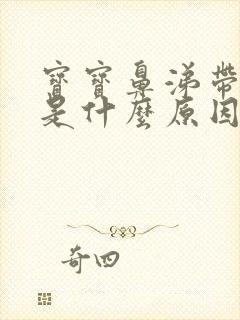 寶寶鼻涕帶
是什麼原因
奇四